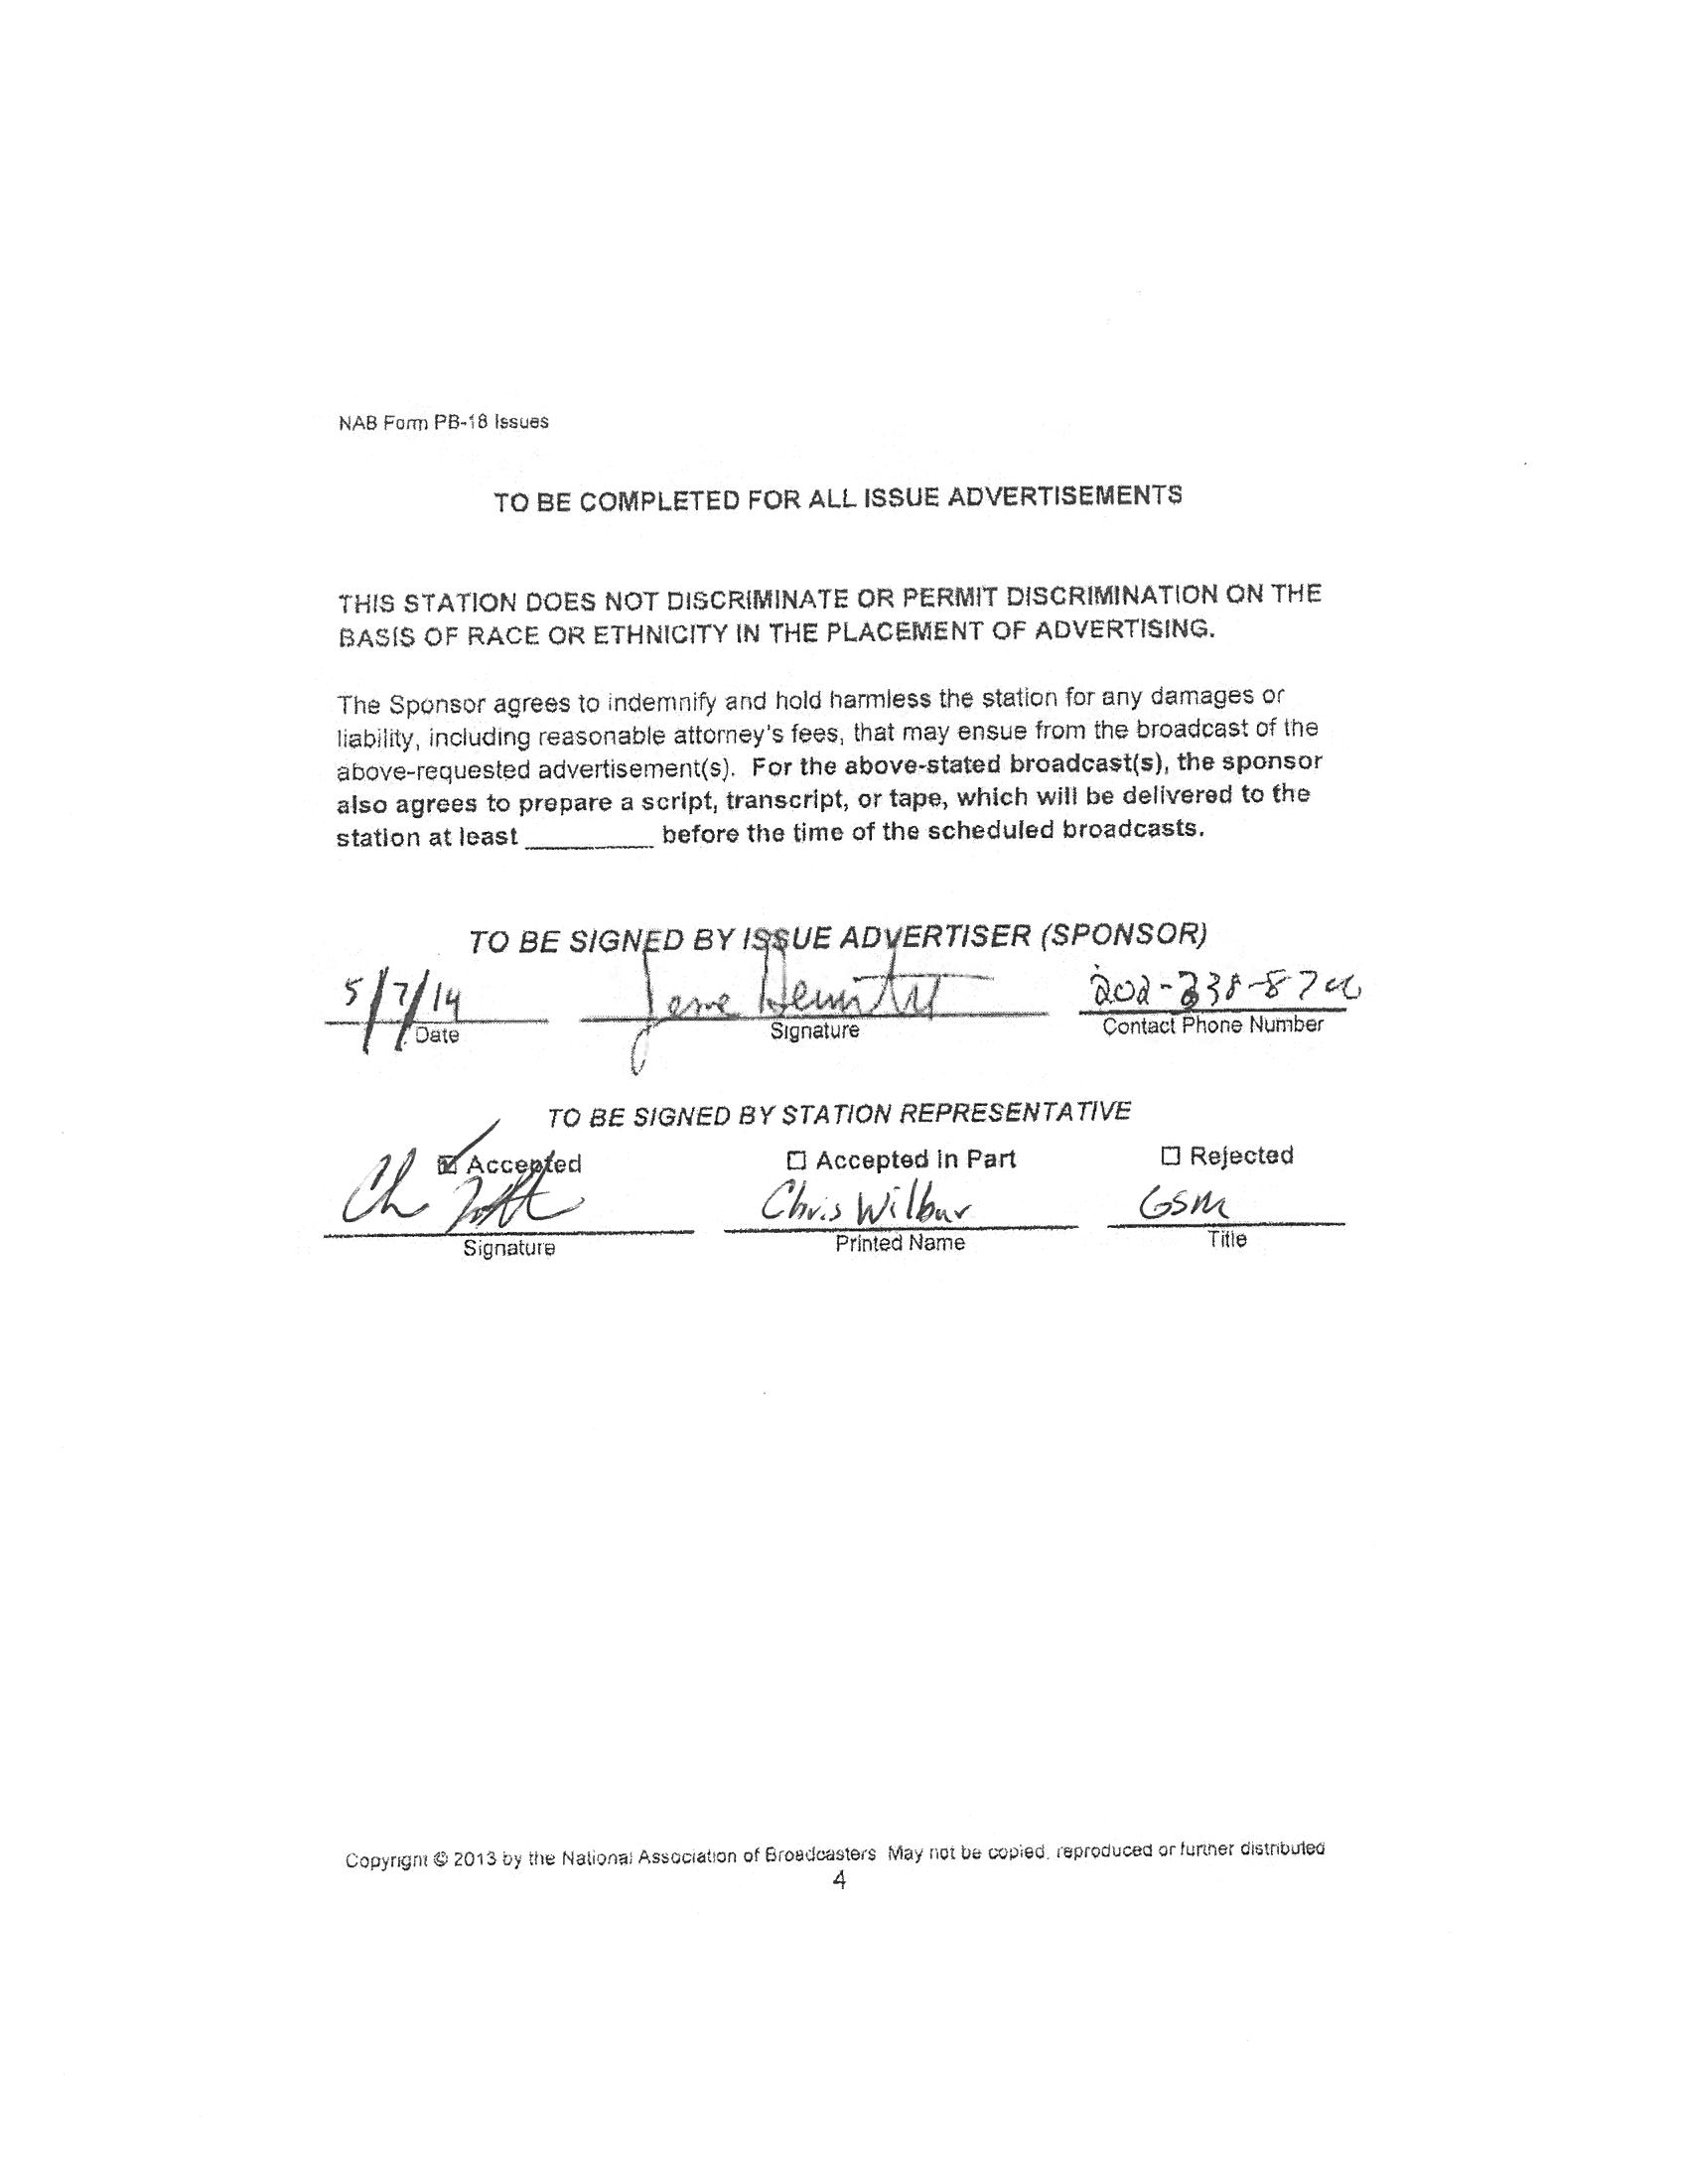 NAB Form PB-18 Issues
TO BE COMPLETED FOR ALL ISSUE ADVERTISEMENTS
THIS STATION DOES NOT DISCRIMINATE OR PERMIT DISCRIMINATION ON THE
BASIS OF RACE OR ETHNICITY IN THE PLACEMENT OF ADVERTISING.
The Sponsor agrees to indemnify and hold harmless the station for any damages or
liability, including reasonable attorney's fees, that may ensue from the broadcast of the
above-requested advertisement(s). For the above-stated broadcast(s), the sponsor
also agrees to prepare a script, transcript, or tape, which will be delivered to the
station at least __________ before the time of the scheduled broadcasts.
TO BE SIGNED BY ISSUE ADVERTISER (SPONSOR)
5/7/14
Date Signature Contact Phone Number
TO BE SIGNED BY STATION REPRESENTATIVE
☑ Accepted ☐ Accepted in Part ☐ Rejected
Chris Wilbur GSM
Signature Printed Name Title
Copyright © 2013 by the National Association of Broadcasters May not be copied, reproduced or further distributed
4